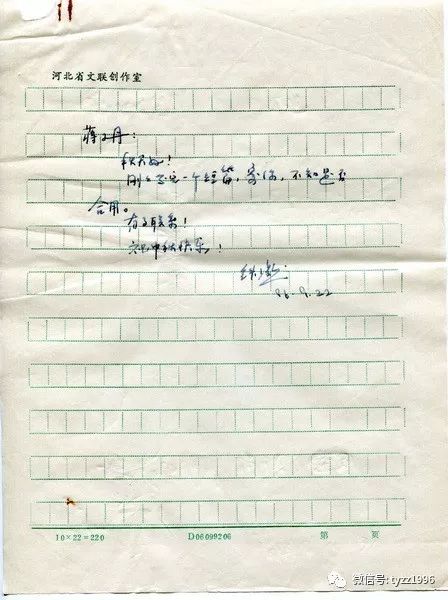 河北省文联创作室
蒋子丹:
秋天好!
刚刚写完一个短篇,寄你,不知是否
合用。
有事联系!
祝中秋快乐!
铁凝
86.9.22
10×22=220 D06099206 第 页
微信号: tyzz1996